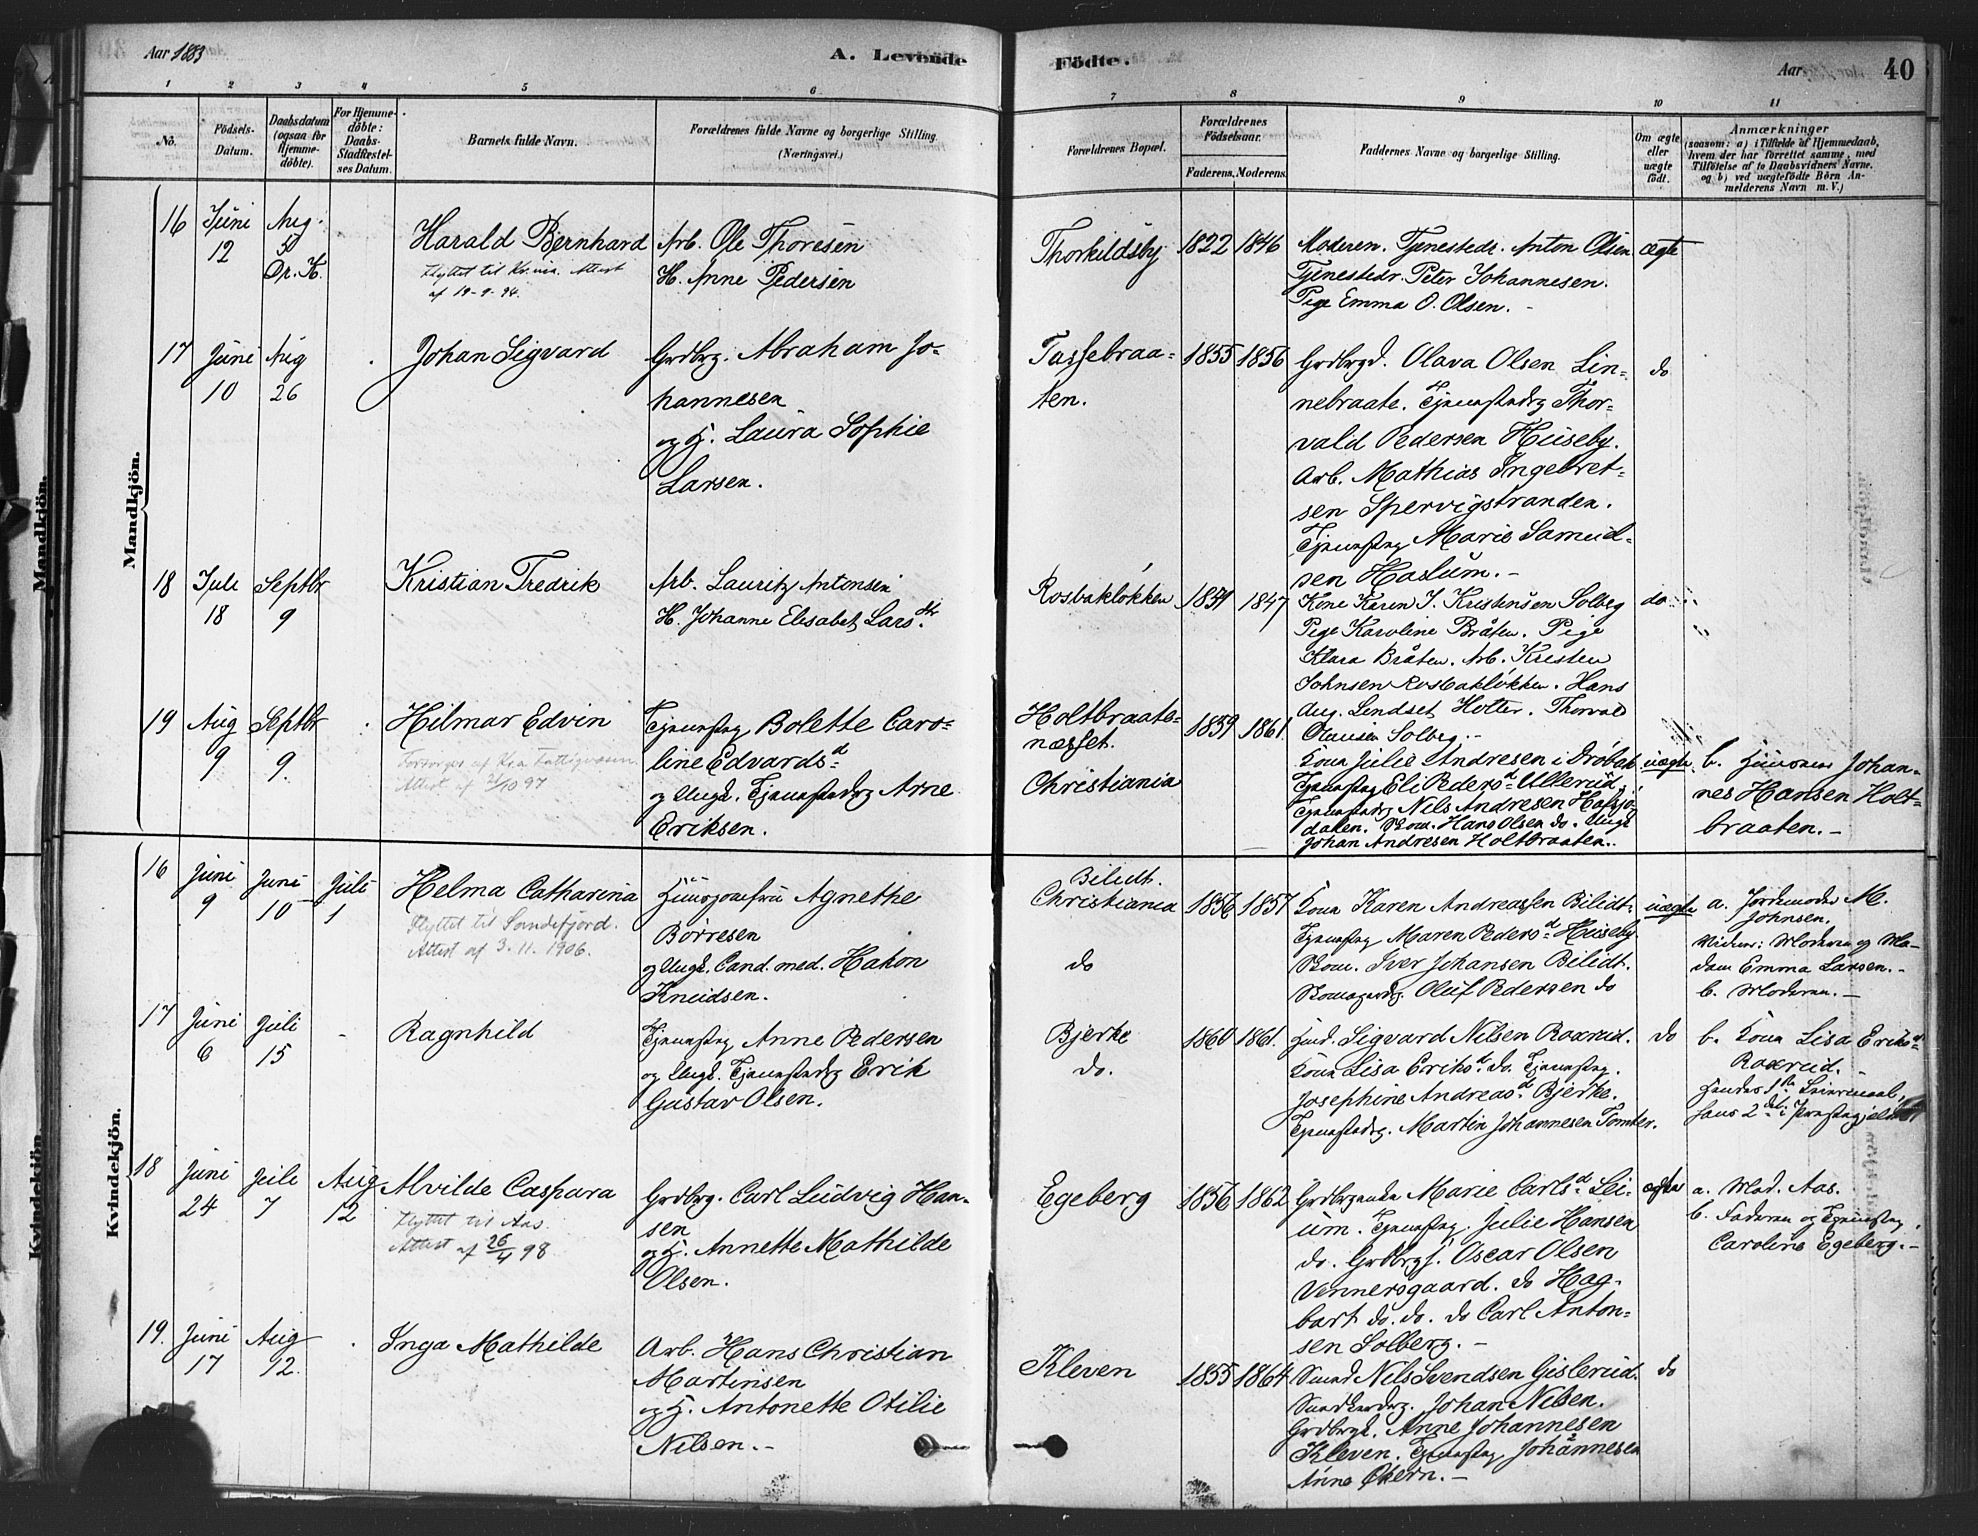 Aar 1883
A. Levende
Födte.
Aar
40
1 2 3 4 5 6 7 8 9 10 11
No.
Födsels-
Datum.
Daabsdatum
(ogsaa for
Hjemme-
döbte).
For Hjemme-
döbte:
Daabs-
Stadfæstel-
ses Datum.
Barnets fulde Navn.
Forældrenes fulde Navne og borgerlige Stilling.
(Næringsvei.)
Forældrenes Bopæl.
Forældrenes
Födselsaar.
Faderens. Moderens.
Faddernes Navne og borgerlige Stilling.
Om ægte
eller
uægte
födt.
Anmærkninger
(saasom: a) i Tilfælde af Hjemmedaab,
hvem der har forrettet samme, med
Tilföielse af to Daabsvidners Navne,
og b) ved uægtefödte Börn An-
melderens Navn m. V.)
Mandkjön.
16 Juni 12
Aug. 5
Dr. K.
Harald Bernhard
Flyttet til Kr.nia. Attest
af 19-9-94.
Arb. Ole Thoresen
H. Anne Pedersen
Thorkildsby
1822 1846
Moderen. Tjenestedr. Anton Olsen
Tjenestedr. Peter Johannesen.
Pige Emma O. Olsen. -
ægte
17 Juni 10
Aug 26
Johan Sigvard
Grdbrg. Abraham Jo-
hannesen
og H. Laura Sophie
Larsen.
Tassebraa-
ten.
1855 1856
Grdbrgd. Olava Olsen Lin-
nebraate. Tjenestedrg Thor-
vald Pedersen Huseby.
Arb. Mathias Ingebret-
sen Spervigstranden.
Tjenestpg Marie Samuel-
sen Haslum. -
do
18 Juli 18
Septbr 9
Kristian Fredrik
Arb. Lauritz Antonsen
H. Johanne Elisabet Larsdtr.
Rosbakløkken
1847
Kone Karen J. Kristensen Solbeg
Pige Karoline Bråten. Pige
Klara Bråten. Arb. Kristen
Johnsen Rosbakløkken. Hans
Aug. Lendset Holter. Thorvald
Olausen Solberg. -
do
19 Aug 9
Septbr 9.
Hilmar Edvin
Forsørges af Kra Fattigvæsen
Attest af 21/10 97
Tjenestpg Bolette Caro-
line Edvardsd
og Ungk. Tjenestedrg Arne
Eriksen.
Holtbraate-
næsset.
Christiania
1859 1861.
Kone Julie Andresen i Drøbak
Tjenestpg Eli Pedersd Ullerud.
Tjenestedrg Nils Andresen
Hans Olsen do. Ungk
Johan Andresen Holtbraaten.
uægte
b. Husmand Johan-
nes Hansen Holt-
braaten. -
Kvindekjön.
16 Juni 9
Juni 10
Juli 1
Helma Catharina
Flyttet til Sandefjord.
Attest af 3.11.1906.
Husjomfru Agnethe
Børresen
og Ungk. Cand. med. Hakon
Knudsen.
Bilidt.
Christiania
do
1856 1857
Kone Karen Andreassen Bilidt.
Tjenestpg Maren Pedersd Huseby.
Iver Johansen Bilidt.
Oluf Pedersen do
uægte
a. Jordemoder M.
Johnsen.
Vidner: Moderen og Ma-
dam Emma Larsen. -
b. Moderen. -
17 Juni 6
Juli 15
-
Ragnhild
Tjenestpg Anne Pedersen
og Ungk. Tjenestedrg Erik
Gustav Olsen.
Bjerke
do.
1860 1861.
Husmd. Sigvard Nilsen Roxrud.
Kone Lisa Eriksd. do. Tjenestpg.
Josephine Andreasd Bjerke.
Tjenestedrg. Martin Johannesen Tomter.
do
b. Kone Lisa Eriksd
Roxrud. -
Hendes 1ste Leiermaal,
hans 2det i Præstegjeldet
18 Juni 24
Juli 7
Aug 12
Alvilde Caspara
Flyttet til Aas.
Attest af 26/4 98
Grdbrg. Carl Ludvig Han-
sen
og H. Annette Mathilde
Olsen.
Egeberg
1856 1862
Marie Carlsd. Lei-
um. Tjenestpg. Julie Hansen
do. Grdbrgs. Oscar Olsen
Vennersgaard. do Hag-
bart do. do. do Carl Anton-
sen Solberg. -
a. Mad. Aas.
b. Faderen og Tjenestpg
Caroline Egeberg. -
19. Juni 17
Aug 12.
Inga Mathilde
Arb. Hans Christian
Martinsen
og H. Antonette Otilie
Nilsen. -
Kleven
1855 1864
Smed Nils Svendsen Gislerud.
Johan Nilsen.
Anne Johannesen
Kleven. Tjenestpg. Johannesen
Anne Økern. -
do